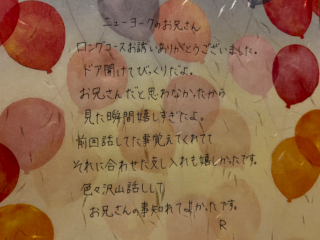 ニューヨークのお兄さん
ロングコースお誘いありがとうございました。
ドア開けてびっくりだよ。
お兄さんだと思わなかったから
見た瞬間嬉しすぎだよ。
前回話してた事覚えてくれてて
それに合わせた差し入れも嬉しかったです。
色々沢山話しして
お兄さんの事知れてよかったです。
R